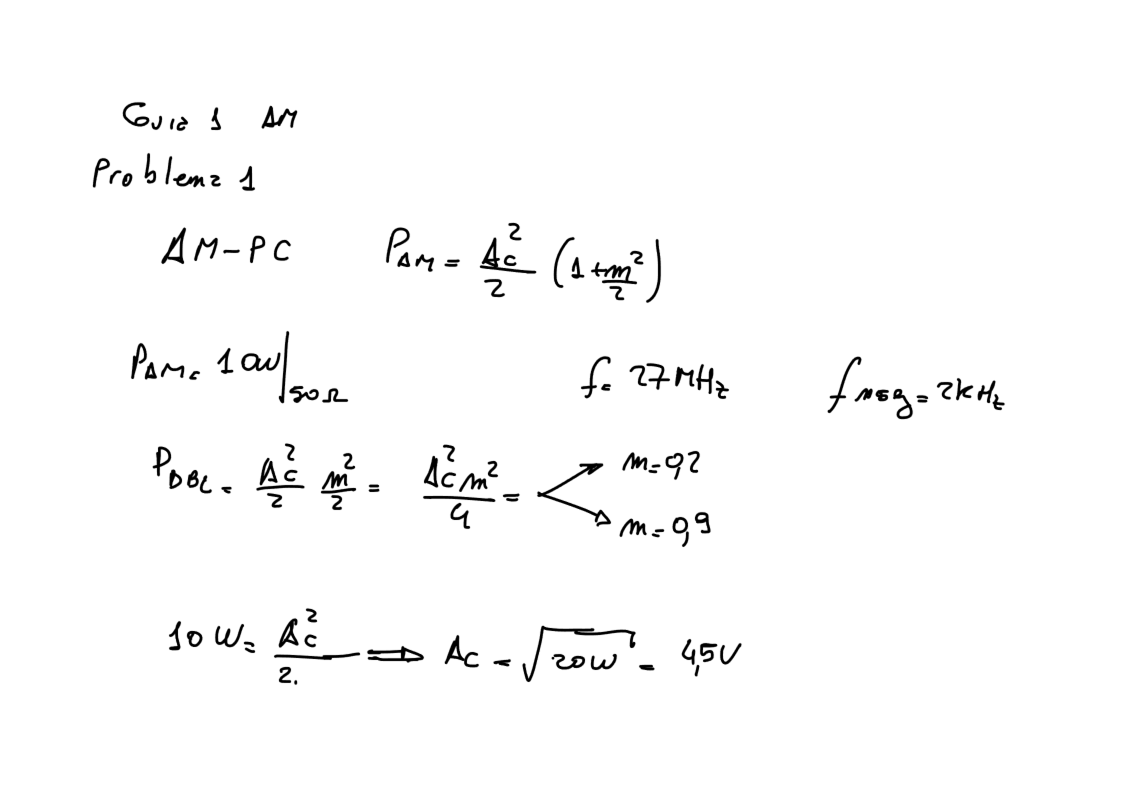 Guia 1 AM
Problema 1
AM-PC P_AM = A_c^2/2 (1 + m^2/2)
P_AM = 10W|50Ω f = 27MHz f_msg = 2kHz
P_DBL = A_c^2/2 m^2/2 = A_c^2 m^2/4 = m=0,2
m=0,9
10W = A_c^2/2. ⟹ A_c = √20W = 4,5V